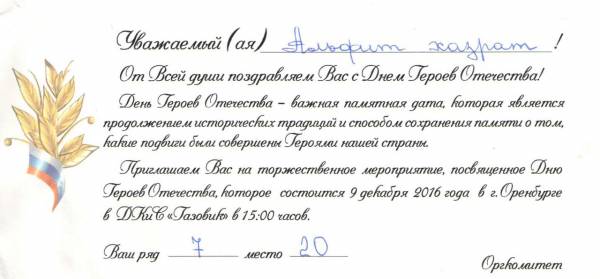 Уважаемый (ая) Альфит хазрат !
От Всей души поздравляем Вас с Днем Героев Отечества!
День Героев Отечества – важная памятная дата, которая является
продолжением исторических традиций и способом сохранения памяти о том,
какие подвиги были совершены Героями нашей страны.
Приглашаем Вас на торжественное мероприятие, посвященное Дню
Героев Отечества, которое состоится 9 декабря 2016 года в г.Оренбурге
в ДКиС «Газовик» в 15:00 часов.
Ваш ряд 7 место 20
Оргкомитет